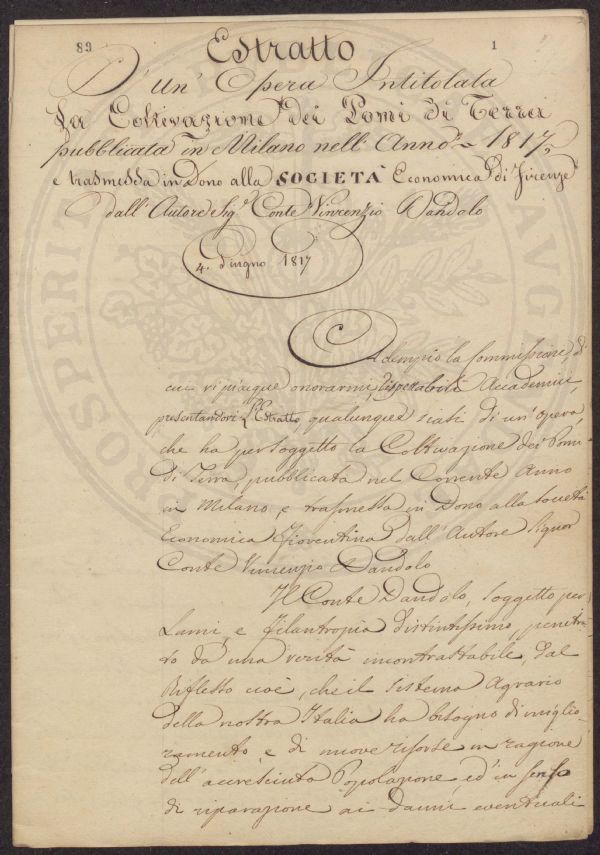 89
1
Estratto
D'un' Opera Intitolata
La Coltivazione dei Pomi di Terra
pubblicata in Milano nell' Anno 1817,
e trasmessa in Dono alla SOCIETÀ Economica di Firenze
dall' Autore Sig.r Conte Vincenzio Dandolo
4. Giugno 1817
Adempio la Commissione, di
cui vi piacque onorarmi, rispettabili Accademici,
presentandovi l'Estratto, qualunque siasi di un'opera,
che ha per soggetto la Coltivazione dei Pomi
di Terra pubblicata nel Corrente Anno
in Milano, e trasmessa in Dono alla società
Economica Fiorentina dall' Autore Signor
Conte Vincenzio Dandolo
Il Conte Dandolo, soggetto per
Lumi, e Filantropia distintissimo, penetra-
to da una verità incontrastabile, dal
Riflesso cioè, che il sistema Agrario
della nostra Italia ha bisogno di miglio-
ramento, e di nuove risorse in ragione
dell' accresciuta Popolazione, ed in senso
di riparazione ai danni eventuali
PROSPERI
AVGE